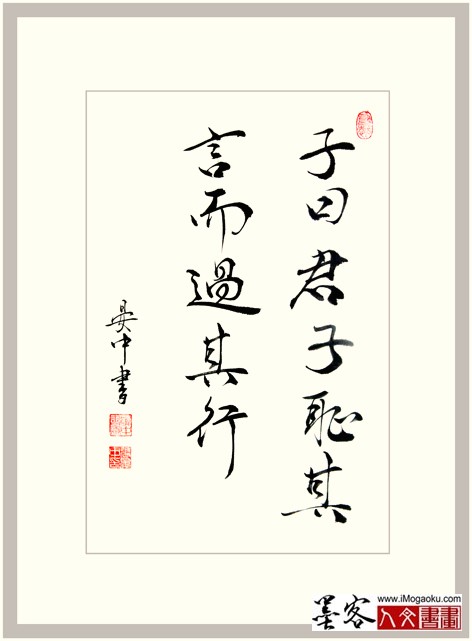 子曰君子恥其
言而過其行
中書
www.iMogaoku.com
墨客
人文書畫